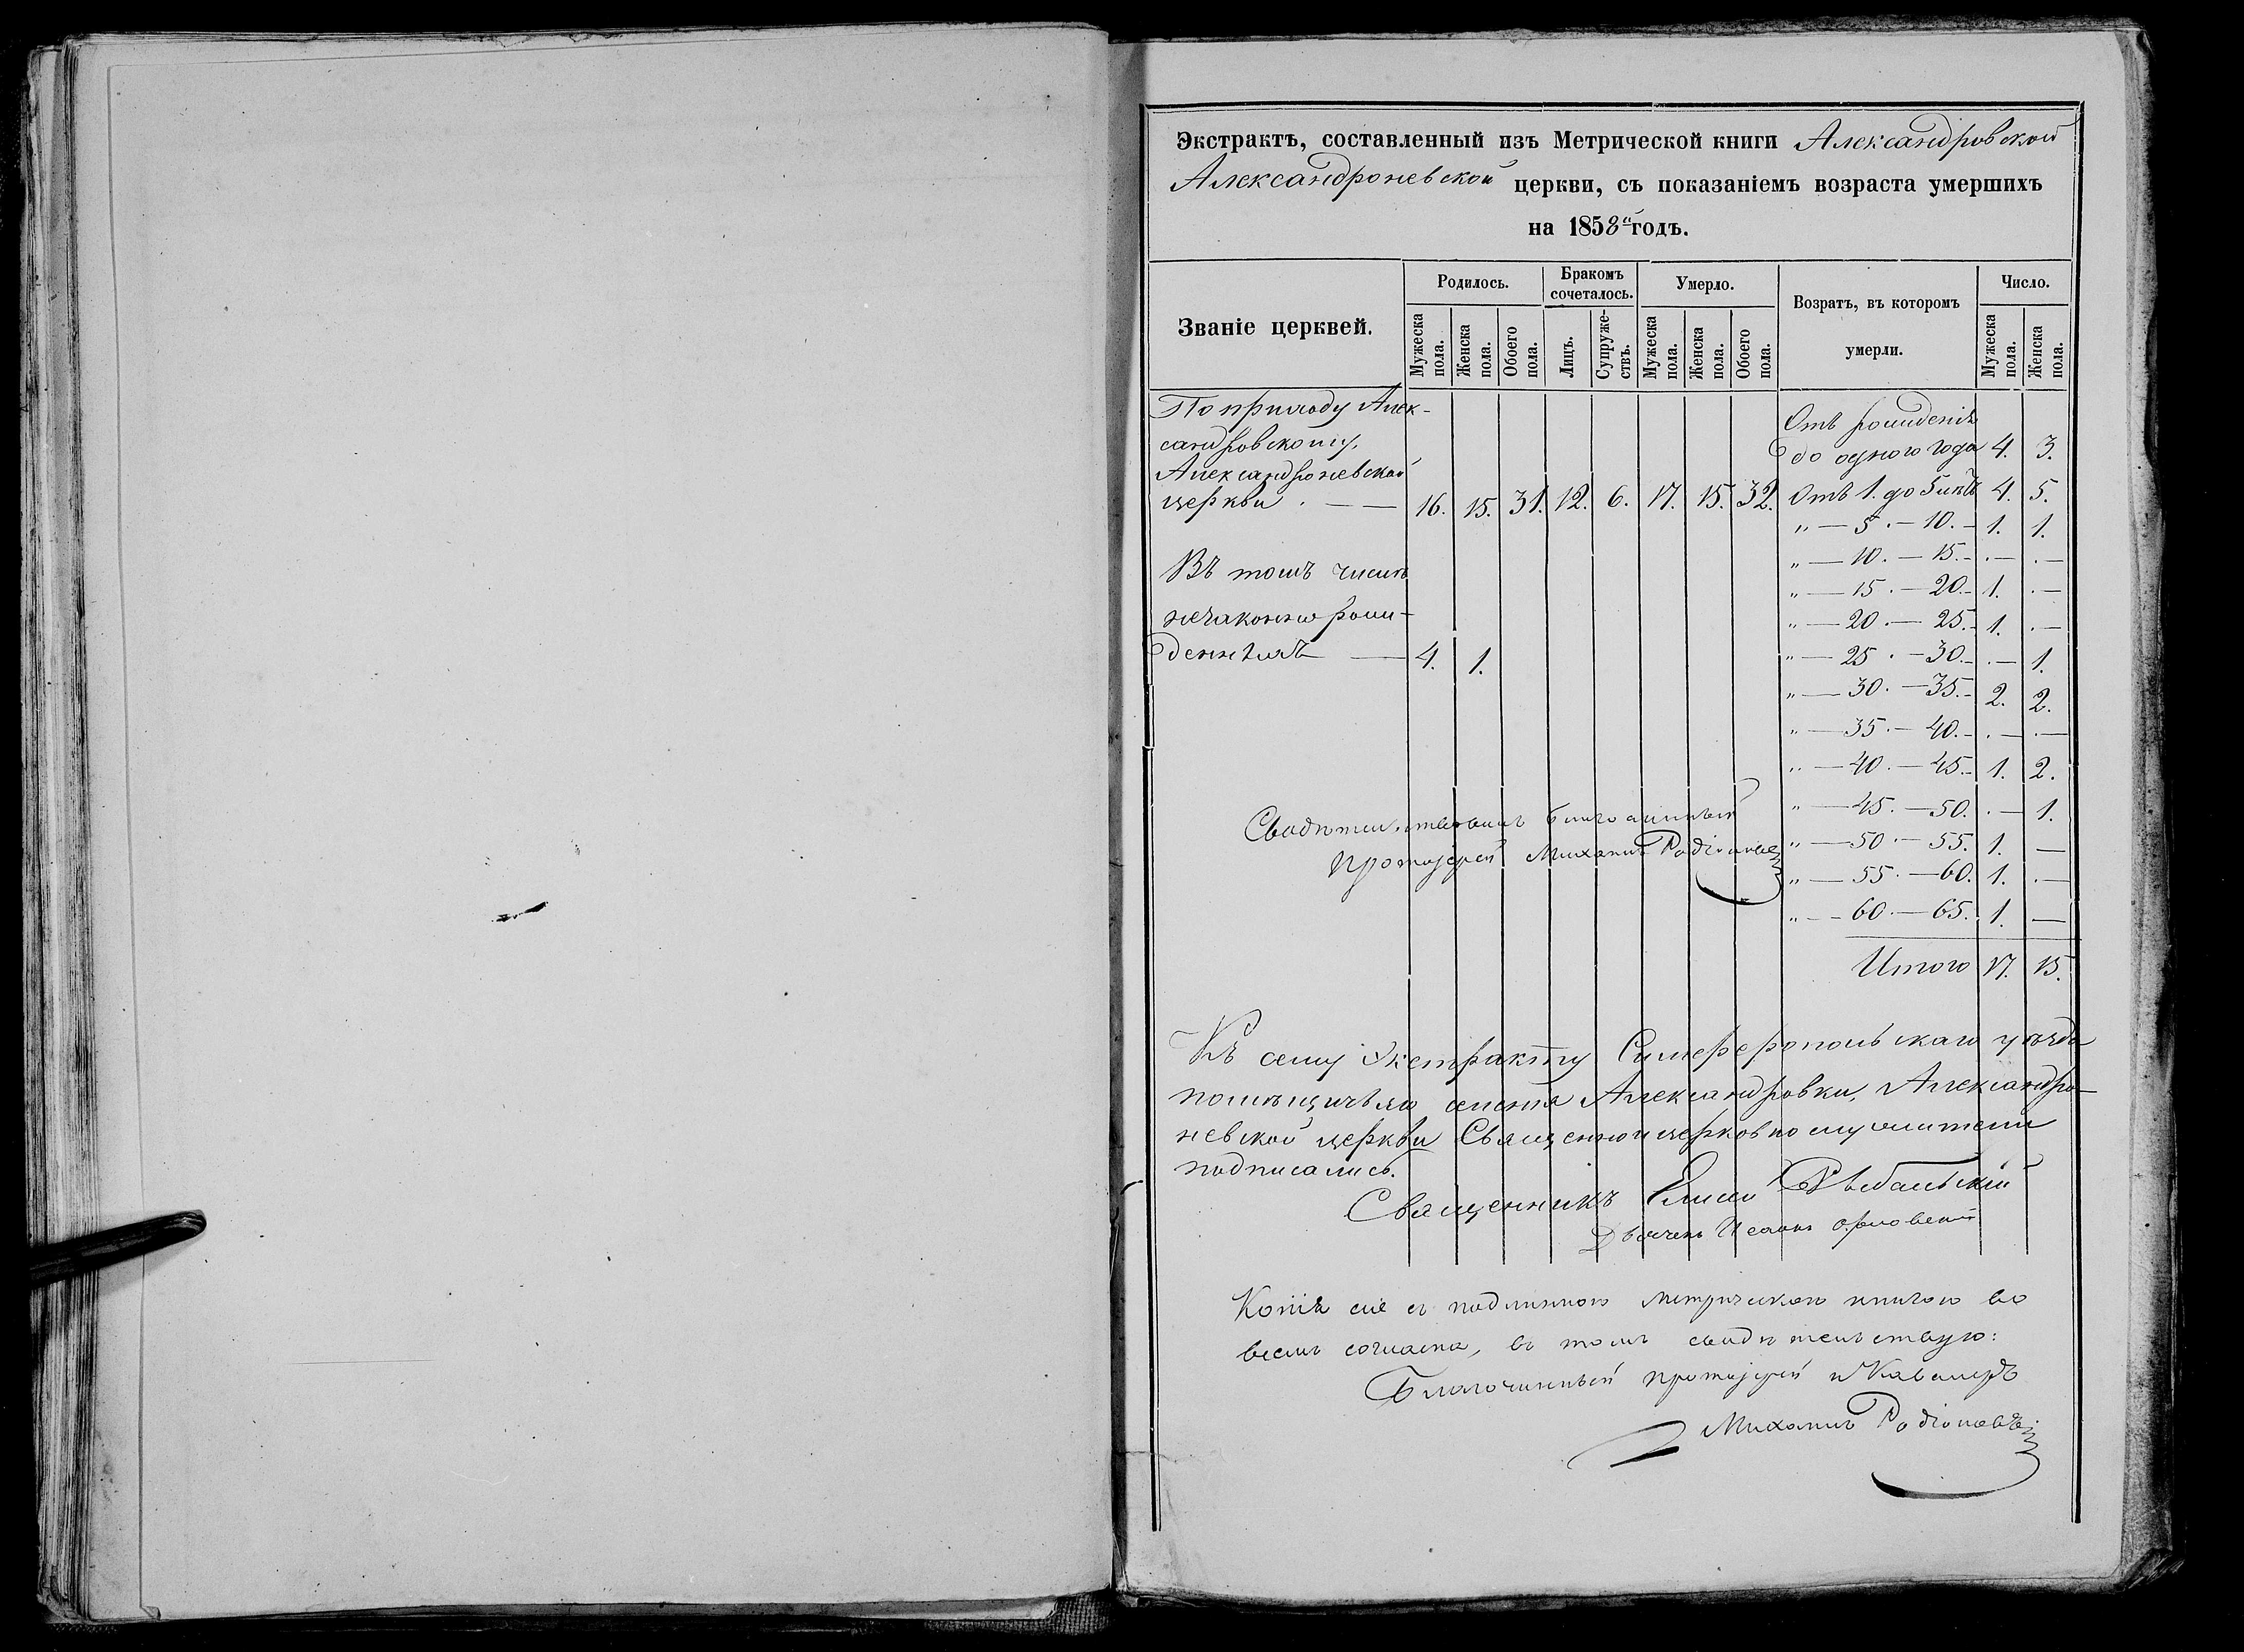 Экстрактъ, составленный изъ Метрической книги Александровской
Александроневской церкви, съ показаніемъ возраста умершихъ
на 1858й годъ.
Званіе церквей. Родилось. Бракомъ сочеталось. Умерло. Возратъ, въ которомъ умерли. Число.
Мужеска пола. Женска пола. Обоего пола. Лицъ. Супружествъ. Мужеска пола. Женска пола. Обоего пола. Мужеска пола. Женска пола.
По приходу Алек-
сандровскому,
Александроневской
церкви . — — 16. 15. 31. 12. 6. 17. 15. 32.
Въ томъ числѣ
незаконно рож-
денныхъ — 4. 1.
Отъ рожденія
до одного года 4. 3.
Отъ 1. до 5 лѣтъ 4. 5.
„ — 5 . — 10. – 1. 1.
„ — 10. — 15. – . — . —
„ — 15 . — 20. – 1. . —
„ — 20 . — 25. – 1. . —
„ — 25 . — 30. – . — 1.
„ — 30. — 35. – 2. 2.
„ — 35 . — 40. – . — . —
„ — 40 . — 45. – 1. 2.
„ — 45. — 50. . — 1.
„ — 50 . — 55. 1. —
„ — 55. — 60. 1. . —
„ — 60. — 65. 1. —
Итого 17. 15.
Свидѣтельствовалъ благочинный
протоіерей Михаилъ Родіоновъ
Къ сему Экстракту Симферопольскаго уѣзда
помѣщичьяго селенія Александровки, Александро-
невской церкви Священноицерковнослужители
подписались.
Священникъ Елисей
Дьячекъ Исаакъ Орловскій
Копія сія съ подлинною метрическою книгою во
всемъ согласна, въ томъ свидѣтельствую:
Благочинный протоіерей и Кавалеръ
Михаилъ Родіоновъ